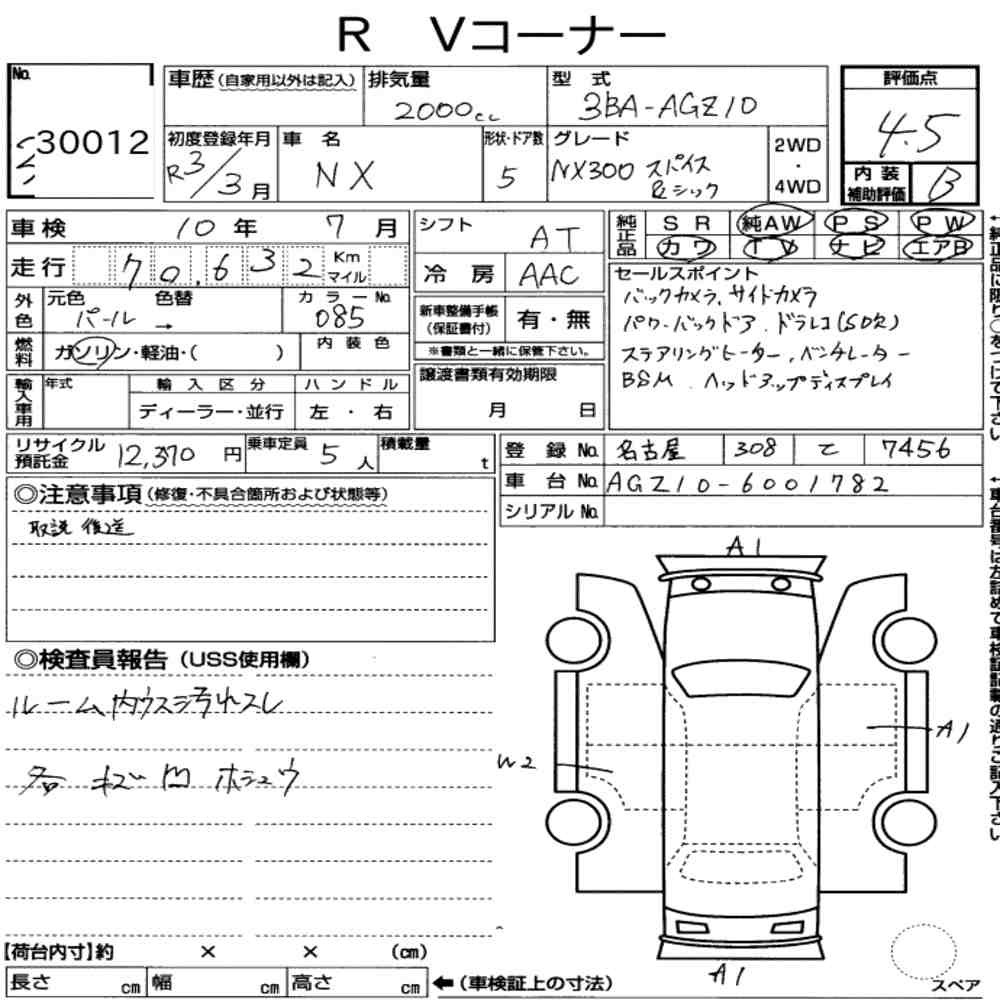 R Vコーナー
No. 30012
車歴(自家用以外は記入) 排気量 2000cc 型式 3BA-AGZ10
評価点 4.5
内装補助評価 B
初度登録年月 R3/3月 車名 NX 形状・ドア数 5 グレード NX300 スパイス&シック 2WD・4WD
車検 10年 7月
シフト AT
純正品 SR 純AW PS PW
カワ TV ナビ エアB
走行 70,632 Km マイル
冷房 AAC
セールスポイント
バックカメラ、サイドカメラ
パワーバックドア、ドラレコ(SD欠)
ステアリングヒーター、ベンチレーター
BSM、ヘッドアップディスプレイ
外色 元色 パール 色替 → カラーNo. 085
新車整備手帳(保証書付) 有・無
※書類と一緒に保管下さい。
燃料 ガソリン・軽油・( ) 内装色
譲渡書類有効期限
月 日
輸入車用 年式 輸入区分 ハンドル
ディーラー・並行 左・右
リサイクル預託金 12,370円 乗車定員 5人 積載量 t
登録No. 名古屋 308 て 7456
車台No. AGZ10-6001782
シリアルNo.
◎注意事項(修復・不具合箇所および状態等)
取説 後送
◎検査員報告(USS使用欄)
ルーム内ウス汚れスレ
各キズ凹 ホシュウ
A1
A1
W2
A1
【荷台内寸】約 × × (cm)
長さ cm 幅 cm 高さ cm ←(車検証上の寸法)
スペア
↑純正品に限り○をつけて下さい
↑車台番号は左詰めで車検証記載の通りご記入下さい